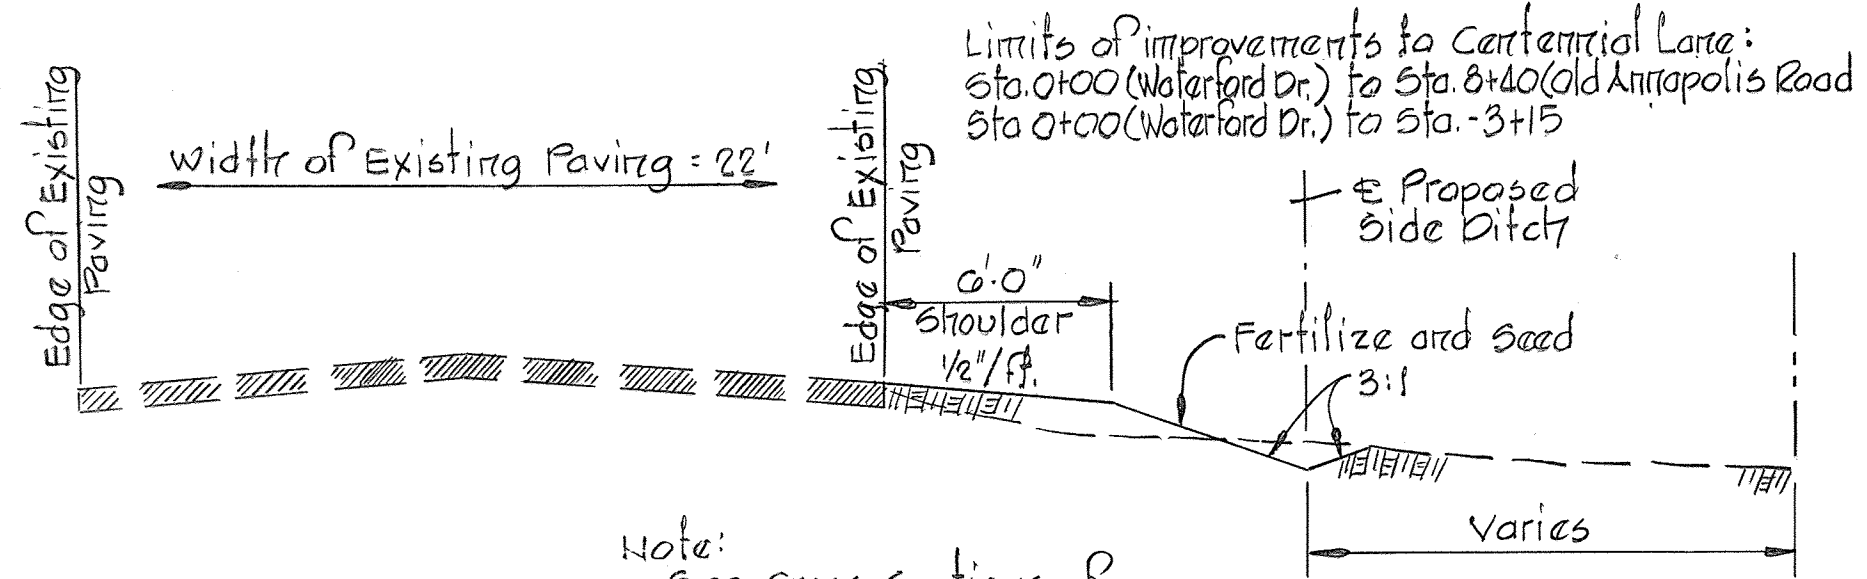 Limits of improvements to Centennial Lane:
Sta. 0+00 (Waterford Dr.) to Sta. 8+40 (Old Annapolis Road
Sta 0+00 (Waterford Dr.) to Sta. -3+15
Edge of Existing
Paving
Width of Existing Paving = 22'
Edge of Existing
Paving
℄ Proposed
Side Ditch
6'-0"
Shoulder
1/2"/ft.
Fertilize and Seed
3:1
Varies
Note: